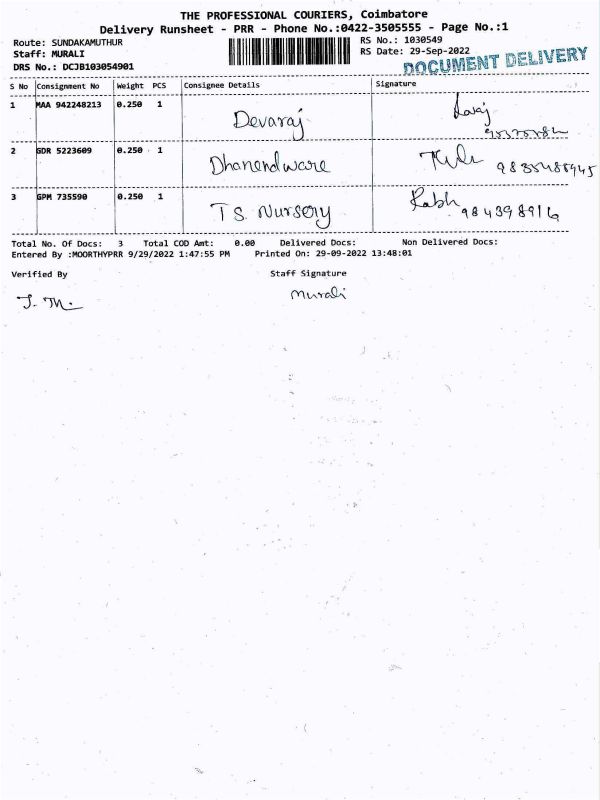 THE PROFESSIONAL COURIERS, Coimbatore
Delivery Runsheet - PRR - Phone No.:0422-3505555 - Page No.:1
Route: SUNDAKAMUTHUR
Staff: MURALI
DRS No.: DCJB103054901
RS No.: 1030549
RS Date: 29-Sep-2022
DOCUMENT DELIVERY
S No Consignment No Weight PCS Consignee Details Signature
1 MAA 942248213 0.250 1 Devaraj
2 GDR 5223609 0.250 1 Dhanendware
3 GPM 735590 0.250 1 T S. Nursery 984398916
Total No. Of Docs: 3 Total COD Amt: 0.00 Delivered Docs: Non Delivered Docs:
Entered By :MOORTHYPRR 9/29/2022 1:47:55 PM Printed On: 29-09-2022 13:48:01
Verified By Staff Signature
J. M. Murali